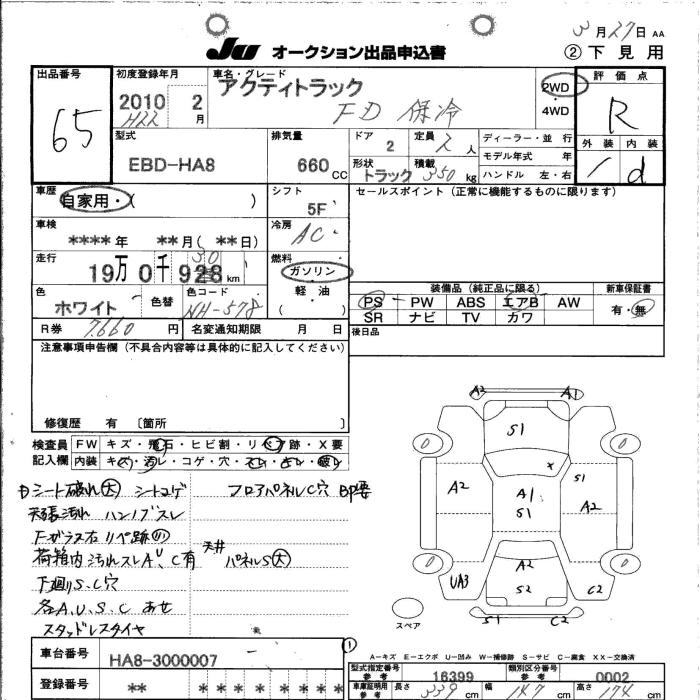 3月27日 AA
JU オークション出品申込書 ②下見用
出品番号 65
初度登録年月 2010 2月 H22
車名・グレード アクティトラック FD 保冷
2WD 4WD
評価点 R
外装 内装
/ d
型式 EBD-HA8
排気量 660 CC
ドア 2
定員 2人
形状 トラック
積載 350 kg
ディーラー・並行
モデル年式 年
ハンドル 左・右
車歴 自家用・( )
シフト 5F
セールスポイント(正常に機能するものに限ります)
車検 ****年 **月( **日)
冷房 AC
走行 19万0千928km 30
燃料 ガソリン 軽油 ( )
色 ホワイト
色替
色コード NH-578
装備品(純正品に限る)
新車保証書 有・無
PS PW ABS エアB AW
SR ナビ TV カワ
R券 7,660円
名変通知期限 月 日
後日品
注意事項申告欄(不具合内容等は具体的に記入してください)
修復歴 有 〔箇所 〕
検査員記入欄
FW キズ・飛石・ヒビ割・リペア跡・X要
内装 キズ・汚レ・コゲ・穴・スレ・切レ・破レ
Dシート破れ(大) シートコゲ フロアパネルC穴 BP要
天張汚れ ハンドブスレ
Fガラス右リペ跡(小)
荷箱内汚れスレA、U、C有 天井パネルS(大)
下廻りS.C穴
各A.U.S.C あせ
スタッドレスタイヤ
A2 A1
S1
0 0
A2 A1 S1 S1 A2
A2
0 0
UA3 S2 C2
S1 C2
スペア
車台番号 HA8-3000007
登録番号 ** * * * * * * * *
①
A-キズ E-エクボ U-凹み W-補修跡 S-サビ C-腐食 XX-交換済
型式指定番号 参考 16399
類別区分番号 参考 0002
車庫証明用 参考 長さ 339 cm 幅 147 cm 高さ 174 cm